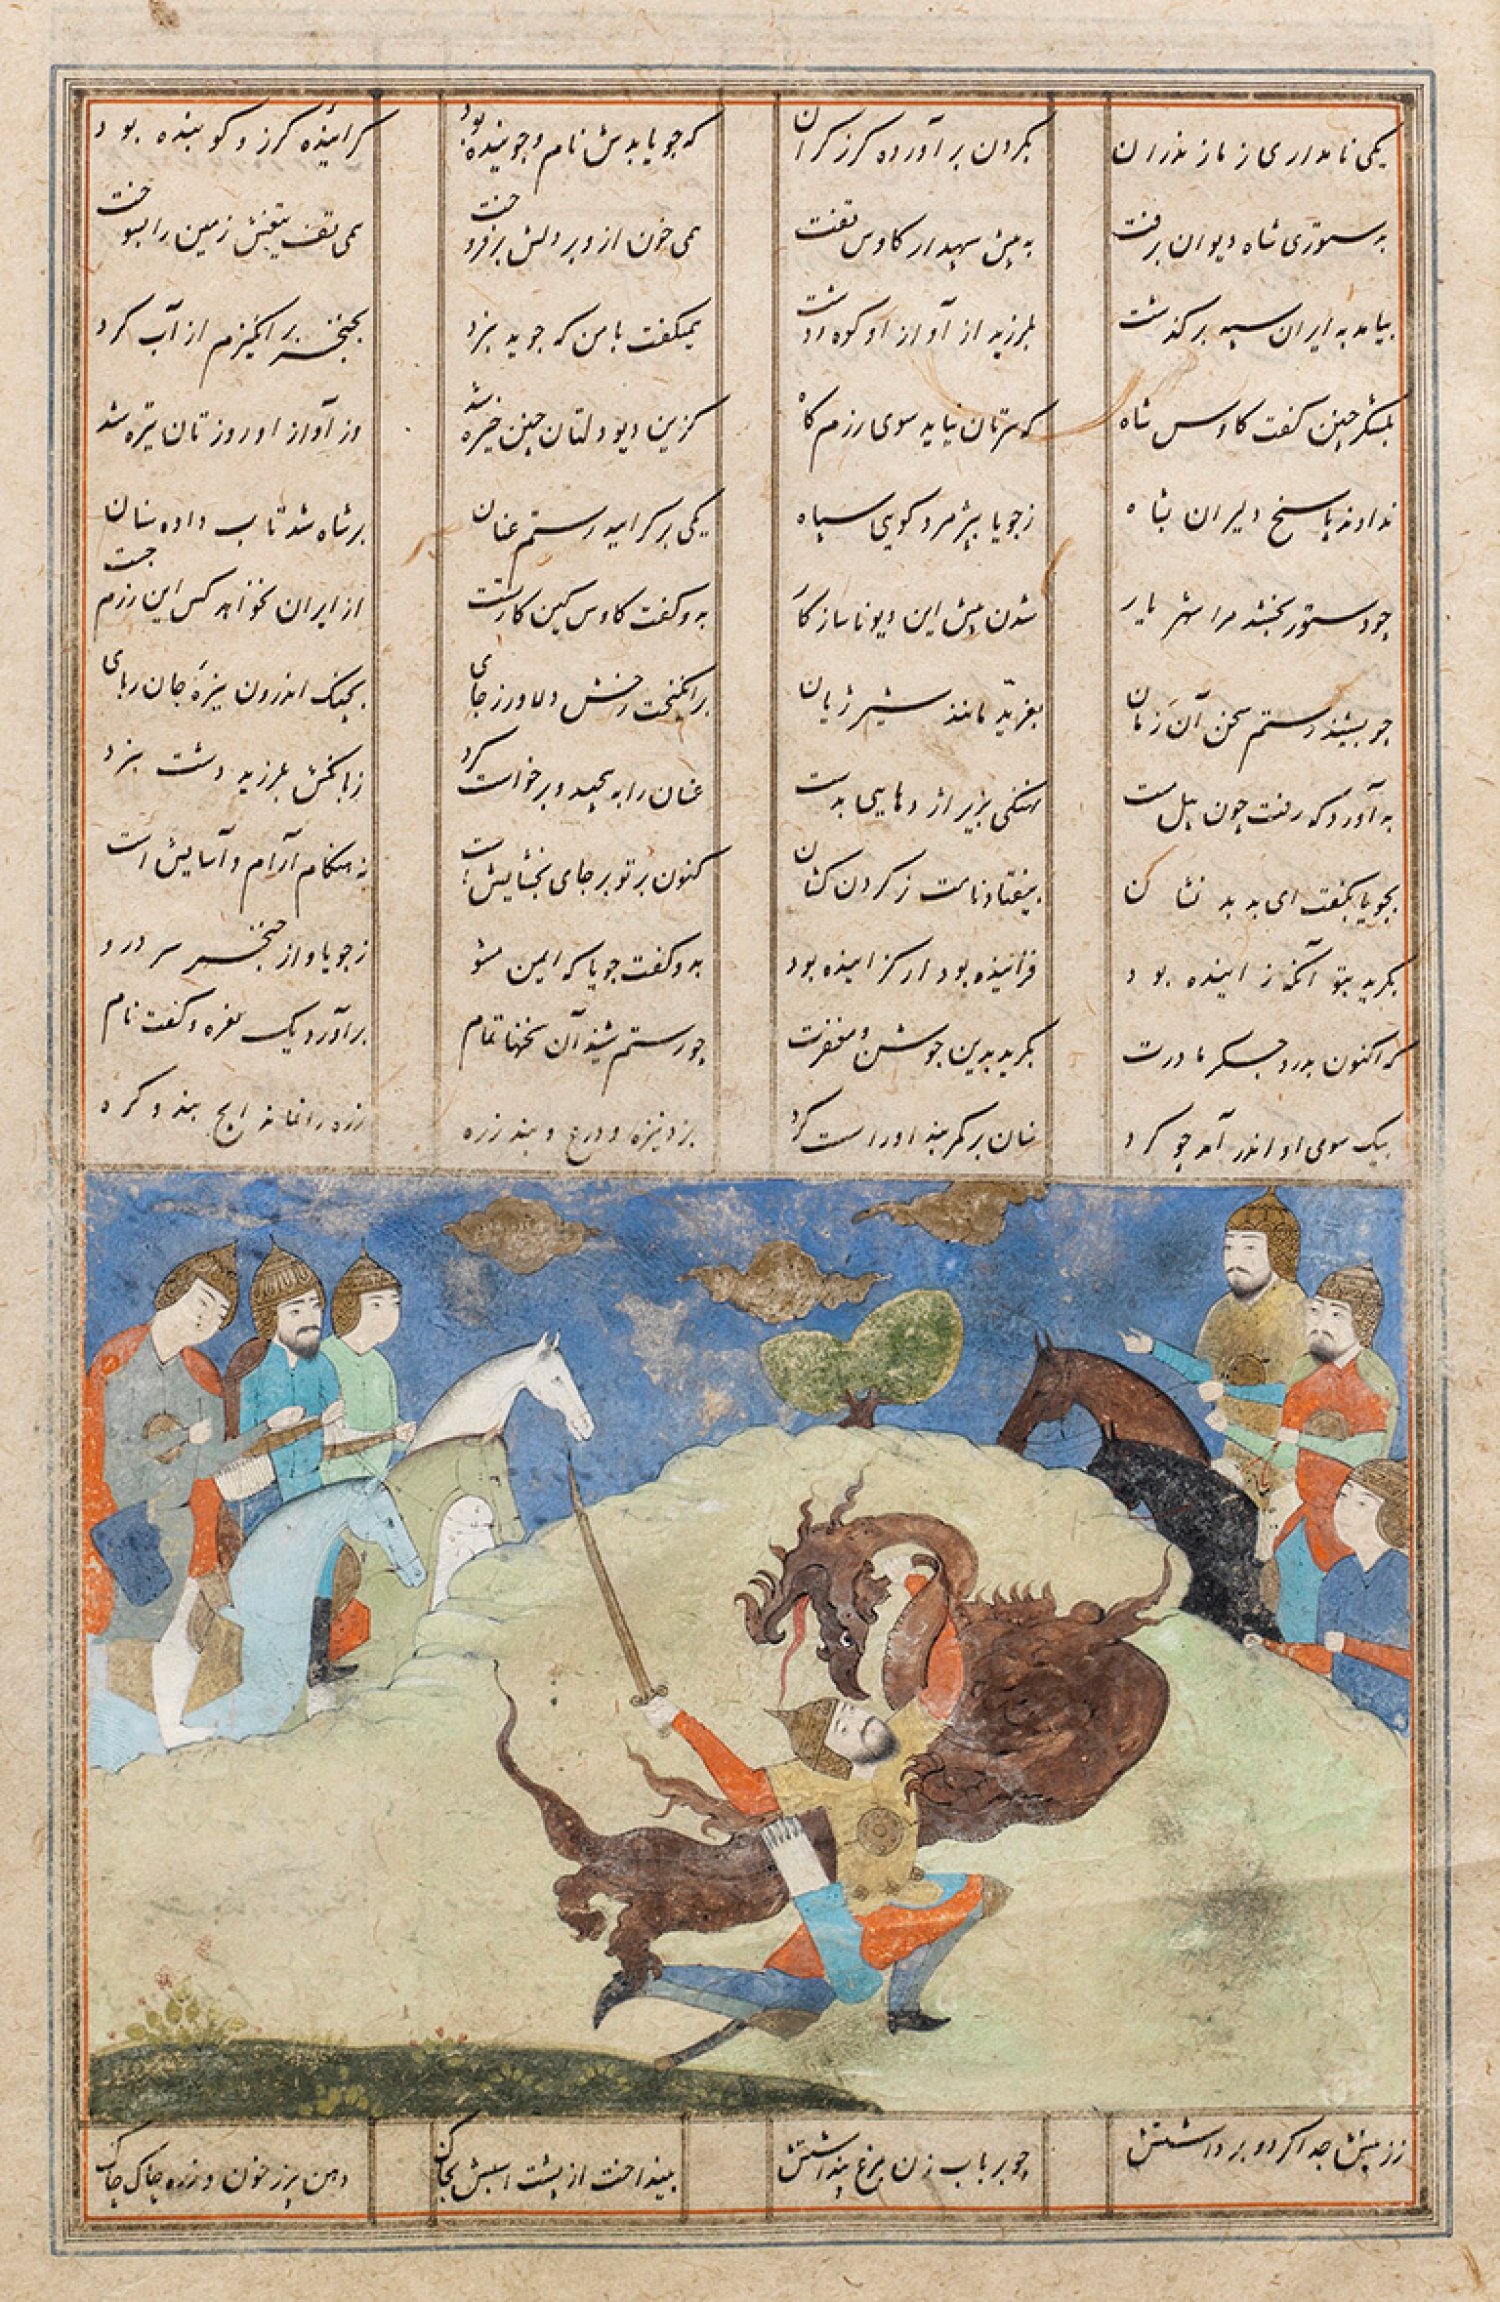 یکی نامداری ز مازندران بگردن برآورده گرز گران که جویا بدش نام و جوینده بود گراینده گرز و گوینده بود
به دستوری شاه دیوان برفت به پیش سپهدار کاوس تفت همی خون ازو بر دلش برفروخت همی تف تیغش زمین را بسوخت
بیامد به ایران سپه برگذشت بلرزید از آواز او کوه و دشت همیگفت با من که جوید نبرد بخنجر برانگیزم از آب گرد
بلشکر چنین گفت کاوس شاه که سرتان نیاید سوی رزم گاه کزین دیو دلتان چنین خیره شد وز آواز او روزتان تیره شد
ندادند پاسخ دلیران بشاه ز جویا بپژمرد گویی سپاه یکی برگرایید رستم عنان بر شاه شد تاب داده سنان
چو دستور بخشد مرا شهریار شدن پیش این دیو ناسازگار بدو گفت کاوس کین کار تست از ایران نخواهد کس این رزم جست
چو بشنید رستم سخن آن زمان بغرید مانند شیر ژیان برانگیخت رخش دلاور ز جای بچنگ اندرون نیزه جان ربای
به آوردگه رفت چون پیل مست پلنگی بزیر اژدهایی بدست عنان را بپیچید و برخواست گرد ز بانگش بلرزید دشت نبرد
بجویا بگفت ای بد بد نشان بیفتاد نامت ز گردن کشان کنون بر تو بر جای بخشایش است نه هنگام آرام و آسایش است
بگرید بتو آنکه زاینده بود فزاینده بود ار گزاینده بود بدو گفت جویا که ایمن مشو ز جویا و از خنجر سر درو
که اکنون بدرد جگر مادرت بگرید بدین جوشن و مغفرت چو رستم شنید آن سخنها تمام برآورد یک نعره و گفت نام
یک سوی او اندر آمد چو گرد سنان بر کمربند او راست کرد بزد نیزه و درع و بند زره زره را نماند ایچ بند و گره
ز زینش جدا کرد و برداشتش چو بر باب زن مرغ پنداشتش بینداخت از پشت اسبش بخاک دهن پر ز خون و زره چاک چاک